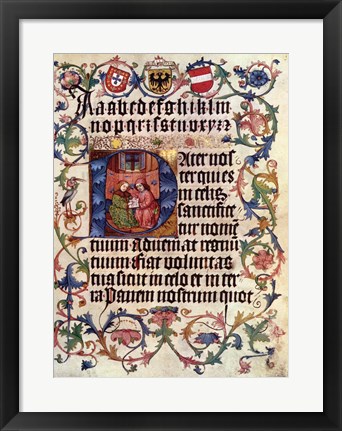 Aaabcdefghiklm
nopqrisstuvxyzz
Pater nos
ter qui es
in celis
sanctifice
tur nome
tuum adveniat regnu
tuum fiat voluntas
tua sicut in celo et in ter
ra Panem nostrum quot